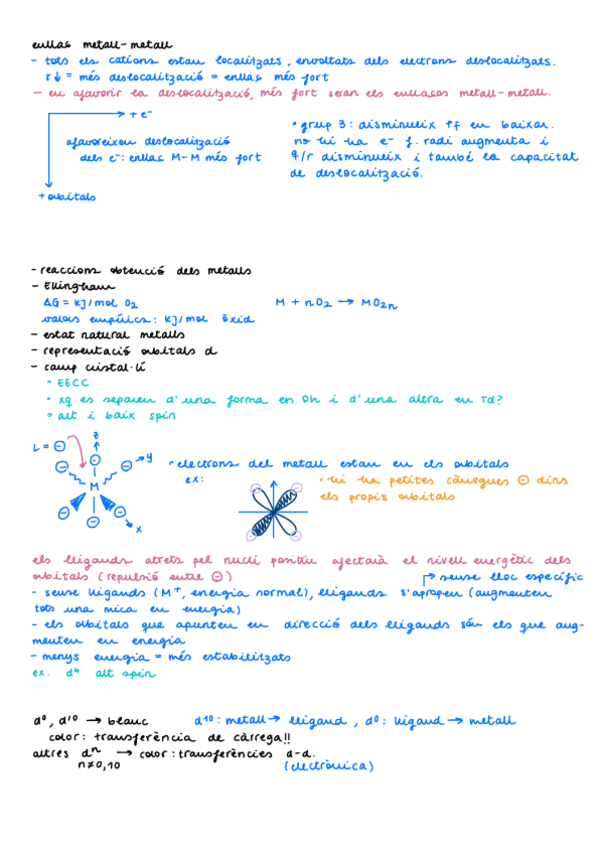 enllaç metall-metall
- tots els cations estan localitzats, envoltats dels electrons deslocalitzats.
r↓ = més deslocalització = enllaç més fort
- en afavorir la deslocalització, més fort seran els enllaços metall-metall.
+ e⁻
afavoreixen deslocalització
dels e⁻: enllaç M-M més fort
+ orbitals
• grup 3: disminueix Tf en baixar.
no hi ha e⁻ f. radi augmenta i
q/r disminueix i també la capacitat
de deslocalització.
- reaccions obtenció dels metalls
- Ellingham
ΔG = kJ/mol O₂
M + nO₂ → MO₂n
valors empírics: kJ/mol òxid
- estat natural metalls
- representació orbitals d
- camp cristal·lí
• EECC
• xq es separen d'una forma en Oh i d'una altra en Td?
• alt i baix spin
L = ⊖
z
y
M
x
• electrons del metall estan en els orbitals
ex:
• hi ha petites càrregues ⊖ dins
els propis orbitals
els lligands atrets pel nucli positiu afectarà el nivell energètic dels
orbitals (repulsió entre ⊖)
↱ sense lloc específic
- sense lligands (M⁺, energia normal), lligands s'apropen (augmenten
tots una mica en energia)
- els orbitals que apunten en direcció dels lligands són els que aug-
menten en energia
- menys energia = més estabilitzats
ex. d⁴ alt spin
d⁰, d¹⁰ → blanc
d¹⁰: metall → lligand, d⁰: lligand → metall
color: transferència de càrrega!!
altres dⁿ → color: transferències d-d.
n≠0,10
(electrònica)